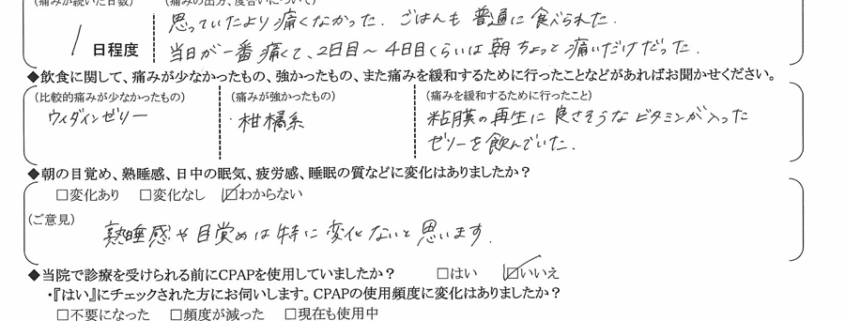 (痛みが続いた日数) (痛みの出方、度合いについて)
思っていたより痛くなかった. ごはんも普通に食べられた.
1 日程度 当日が一番痛くて、2日目～4日目くらいは朝ちょっと痛いだけだった.
◆飲食に関して、痛みが少なかったもの、強かったもの、また痛みを緩和するために行ったことなどがあればお聞かせください。
(比較的痛みが少なかったもの) (痛みが強かったもの) (痛みを緩和するために行ったこと)
ウィダインゼリー ・柑橘系 粘膜の再生に良さそうなビタミンが入った
ゼリーを飲んでいた.
◆朝の目覚め、熟睡感、日中の眠気、疲労感、睡眠の質などに変化はありましたか？
□変化あり □変化なし ☑わからない
(ご意見)
熟睡感や目覚めは特に変化ないと思います.
◆当院で診療を受けられる前にCPAPを使用していましたか？ □はい ☑いいえ
・『はい』にチェックされた方にお伺いします。CPAPの使用頻度に変化はありましたか？
□不要になった □頻度が減った □現在も使用中